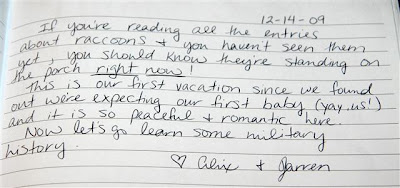 12-14-09
If you're reading all the entries
about raccoons & you haven't seen them
yet, you should know they're standing on
the porch right now!
This is our first vacation since we found
out we're expecting our first baby (yay us!)
and it is so peaceful & romantic here.
Now let's go learn some military
history.
♡ Alix & Jarren